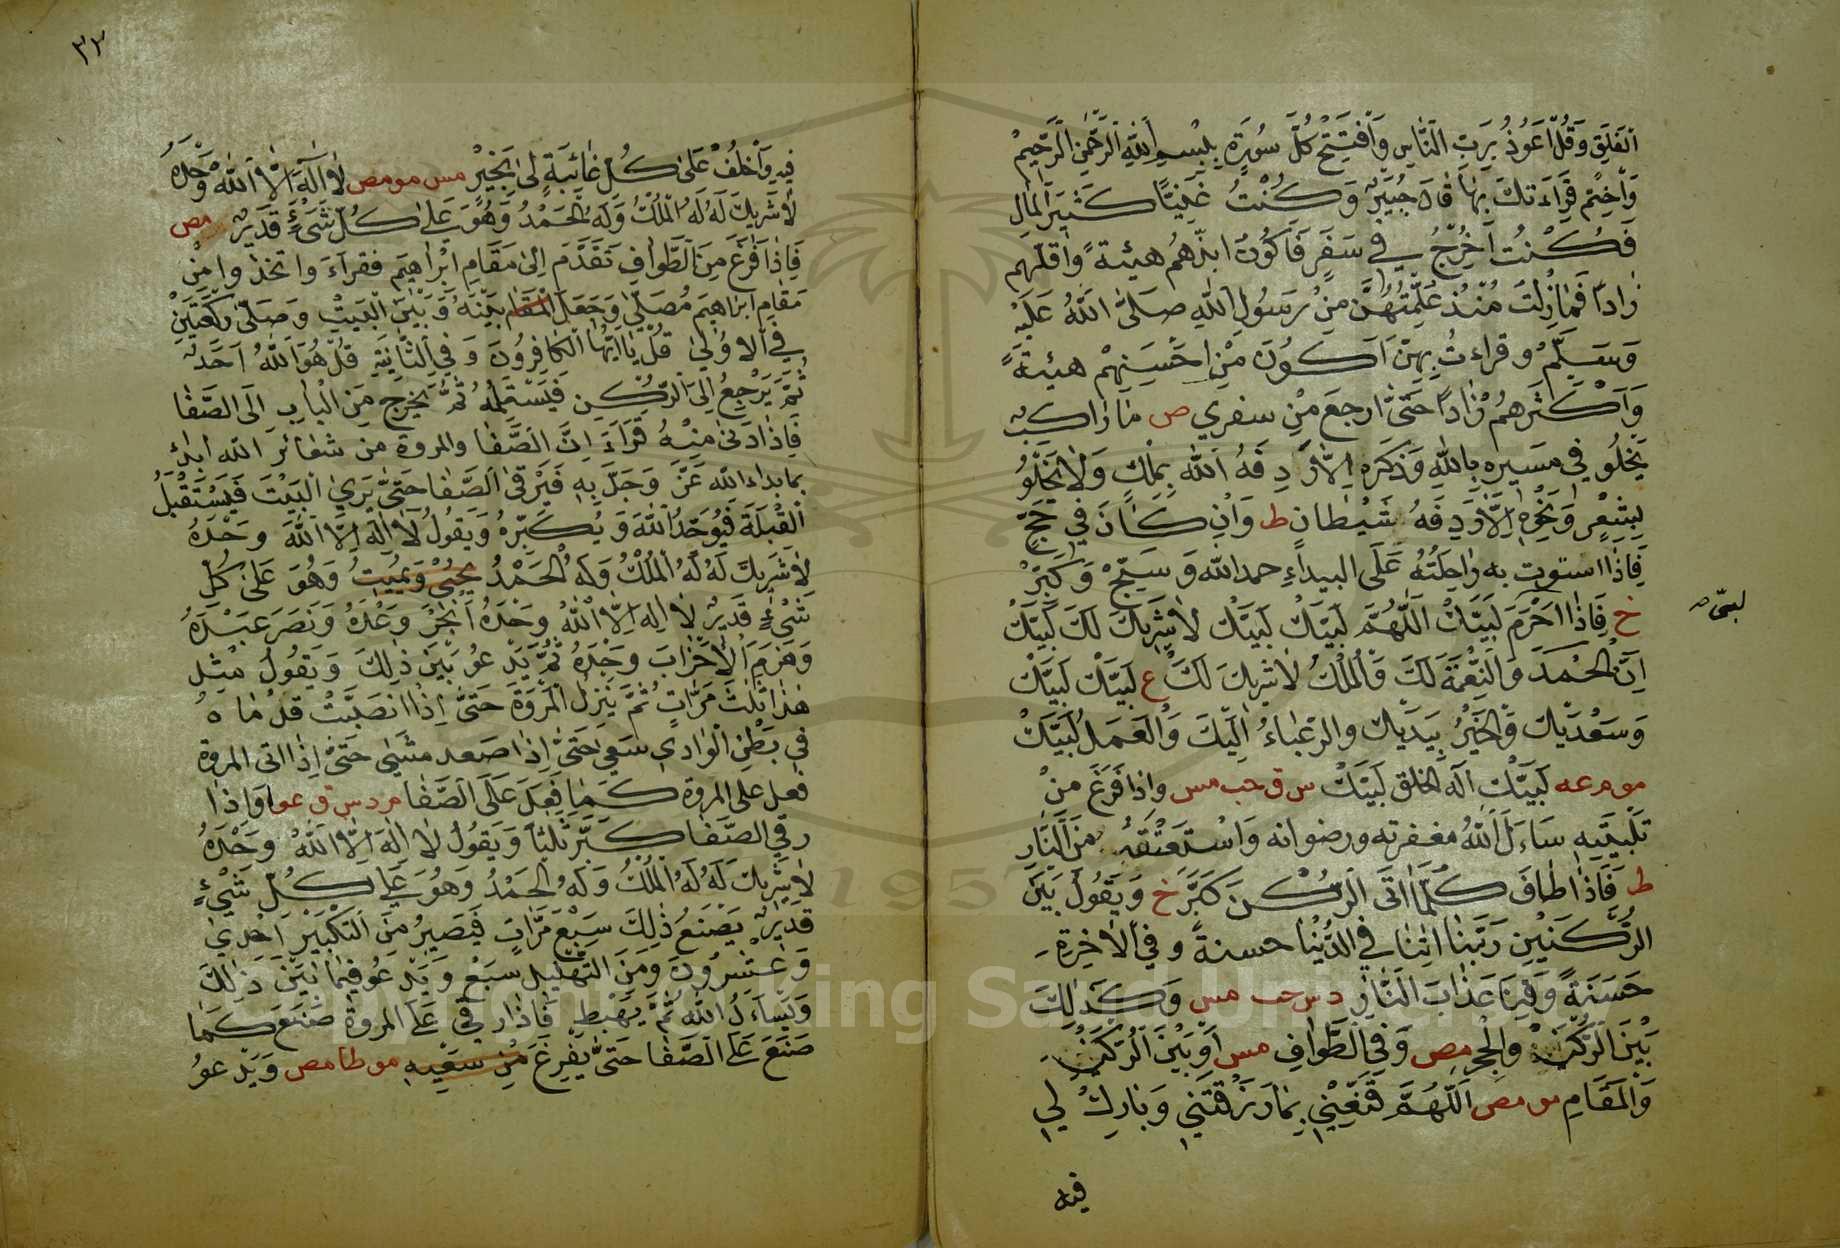 الفلق وقل اعوذ برب الناس وافتتح كل سورة ببسم الله الرحمن الرحيم
واختم قراءتك بها قال جبير وكنت غنيا كثير المال
فكنت اخرج في سفر فاكون ابذهم هيئة واقلهم
زادا فمازلت منذ علمتهن من رسول الله صلى الله عليه
وسلم وقراءت بهن اكون من احسنهم هيئة
واكثرهم زادا حتى ارجع من سفري ص ما راكب
يخلو في مسيره بالله وذكره الا ردفه الله بملك ولا يخلو
بشعر ونحوه الا ردفه شيطان ط وان كان في حج
فاذا استوت به راحلته على البيداء حمد الله وسبح وكبر
خ فاذا احرم لبيك اللهم لبيك لبيك لا شريك لك لبيك
لبى
ان الحمد والنعمة لك والملك لا شريك لك ع لبيك لبيك
وسعديك والخير بيديك والرغباء اليك والعمل لبيك
مو م عه لبيك اله الخلق لبيك س ق حب مس واذا فرغ من
تلبيته ساءل الله مغفرته ورضوانه واستعتقه من النار
ط فاذا طاف كلما اتى الركن كبر خ ويقول بين
الركنين ربنا اتنا في الدنيا حسنة وفي الاخرة
حسنة وقنا عذاب النار د س حب مس وكذلك
بين الركن والحجر مص وفي الطواف مس او بين الركن
والمقام مو مص اللهم قنعني بما رزقتني وبارك لي
فيه
٣٢
فيه واخلف على كل غائبة لي بخير مس مو مص لا اله الا الله وحده
لا شريك له له الملك وله الحمد وهو على كل شيء قدير مص
فاذا فرغ من الطواف تقدم الى مقام ابراهيم فقراء واتخذوا من
مقام ابراهيم مصلى وجعل المقام بينه وبين البيت وصلى ركعتين
في الاولى قل يا ايها الكافرون وفي الثانية قل هو الله احد
ثم يرجع الى الركن فيستلمه ثم يخرج من الباب الى الصفا
فاذا دنى منه قراء ان الصفا والمروة من شعائر الله ابدء
بما بداء الله عز وجل به فيرقى الصفا حتى يرى البيت فيستقبل
القبلة فيوحد الله ويكبره ويقول لا اله الا الله وحده
لا شريك له له الملك وله الحمد يحيي ويميت وهو على كل
شيء قدير لا اله الا الله وحده انجز وعده ونصر عبده
وهزم الاحزاب وحده ثم يدعو بين ذلك ويقول مثل
هذا ثلث مرات ثم ينزل المروة حتى اذا انصبت قدماه
في بطن الوادي سعى حتى اذا صعد مشى حتى اذا اتى المروة
فعل على المروة كما فعل على الصفا م د س ق عو واذا
رقي الصفا كبر ثلثا ويقول لا اله الا الله وحده
لا شريك له له الملك وله الحمد وهو على كل شيء
قدير يصنع ذلك سبع مرات فيصير من التكبير احدى
وعشرون ومن التهليل سبع ويدعو فيما بين ذلك
ويساءل الله ثم يهبط فاذا رقي على المروة صنع كما
صنع على الصفا حتى يفرغ من سعيه مو طا مص ويدعو